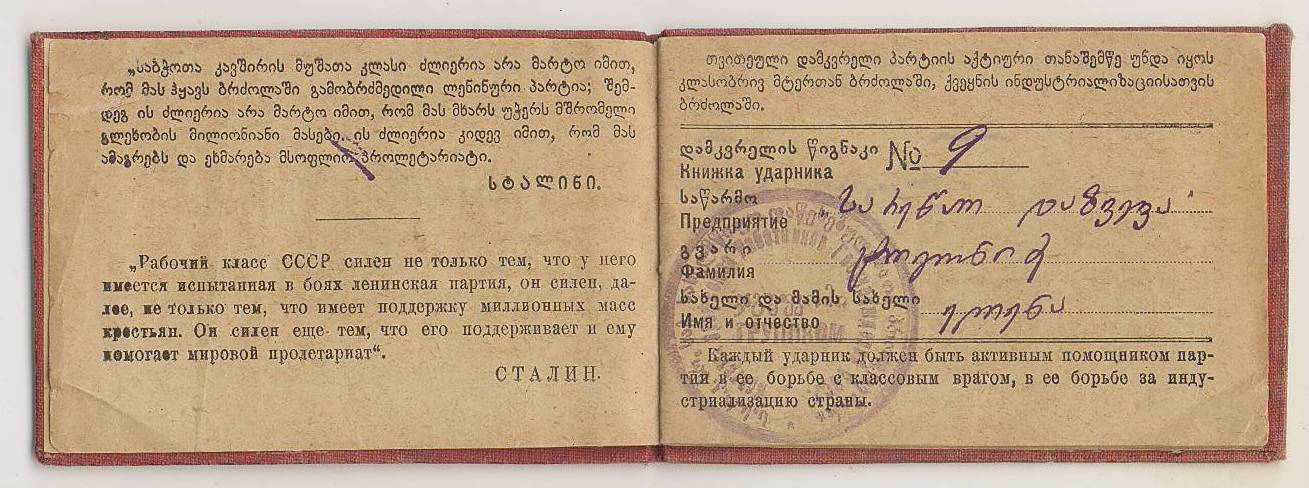 „საბჭოთა კავშირის მუშათა კლასი ძლიერია არა მარტო იმით,
რომ მას ჰყავს ბრძოლაში გამობრძმედილი ლენინური პარტია; შემ-
დეგ ის ძლიერია არა მარტო იმით, რომ მას მხარს უჭერს მშრომელი
გლეხობის მილიონიანი მასები. ის ძლიერია კიდევ იმით, რომ მას
ამაგრებს და ეხმარება მსოფლიო პროლეტარიატი.
სტალინი.
„Рабочий класс СССР силен не только тем, что у него
имеется испытанная в боях ленинская партия, он силен, да-
лее, не только тем, что имеет поддержку миллионных масс
крестьян. Он силен еще тем, что его поддерживает и ему
помогает мировой пролетариат“.
СТАЛИН.
თვითეული დამკვრელი პარტიის აქტიური თანაშემწე უნდა იყოს
კლასობრივ მტერთან ბრძოლაში, ქვეყნის ინდუსტრიალიზაციისათვის
ბრძოლაში.
დამკვრელის წიგნაკი № 9
Книжка ударника
საწარმო
Предприятие
გვარი
Фамилия
სახელი და მამის სახელი
Имя и отчество
Каждый ударник должен быть активным помощником пар-
тии в ее борьбе с классовым врагом, в ее борьбе за инду-
стриализацию страны.